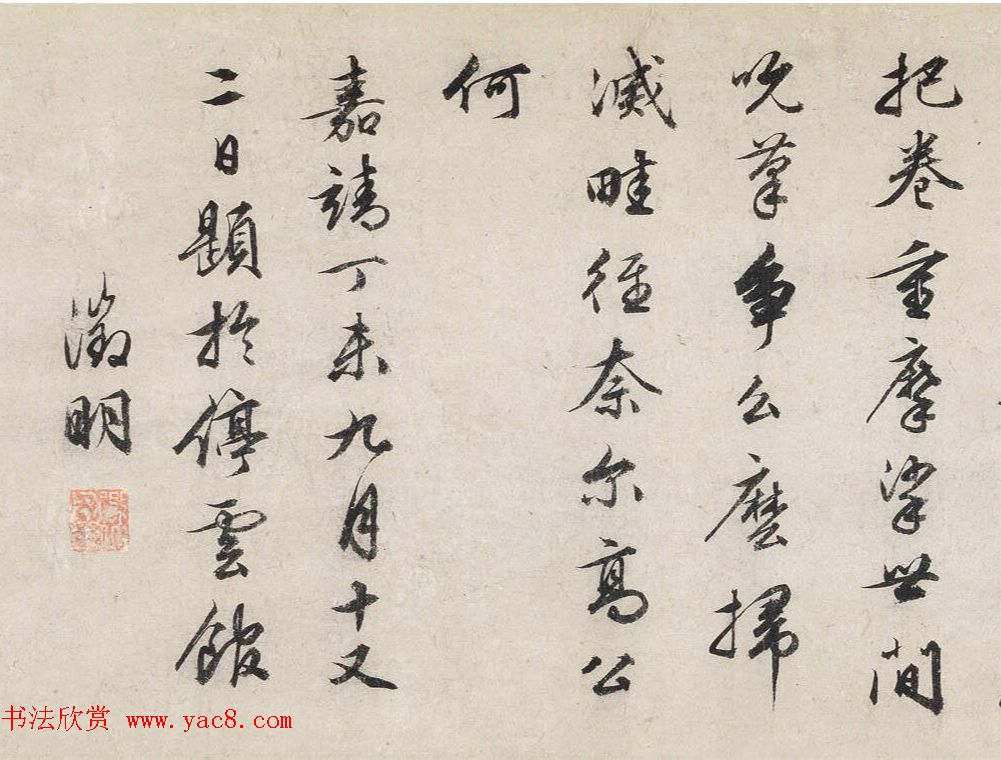 把卷重摩挲世間
吮筆爭么麼掃
滅畦徑奈尔高公
何
嘉靖丁未九月十又
二日題於停雲館
徵明
书法欣赏 www.yac8.com